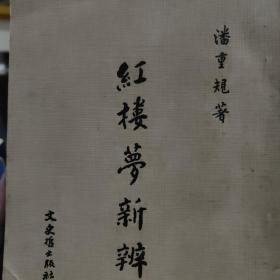 潘重規著
紅樓夢新辨
文史哲出版社